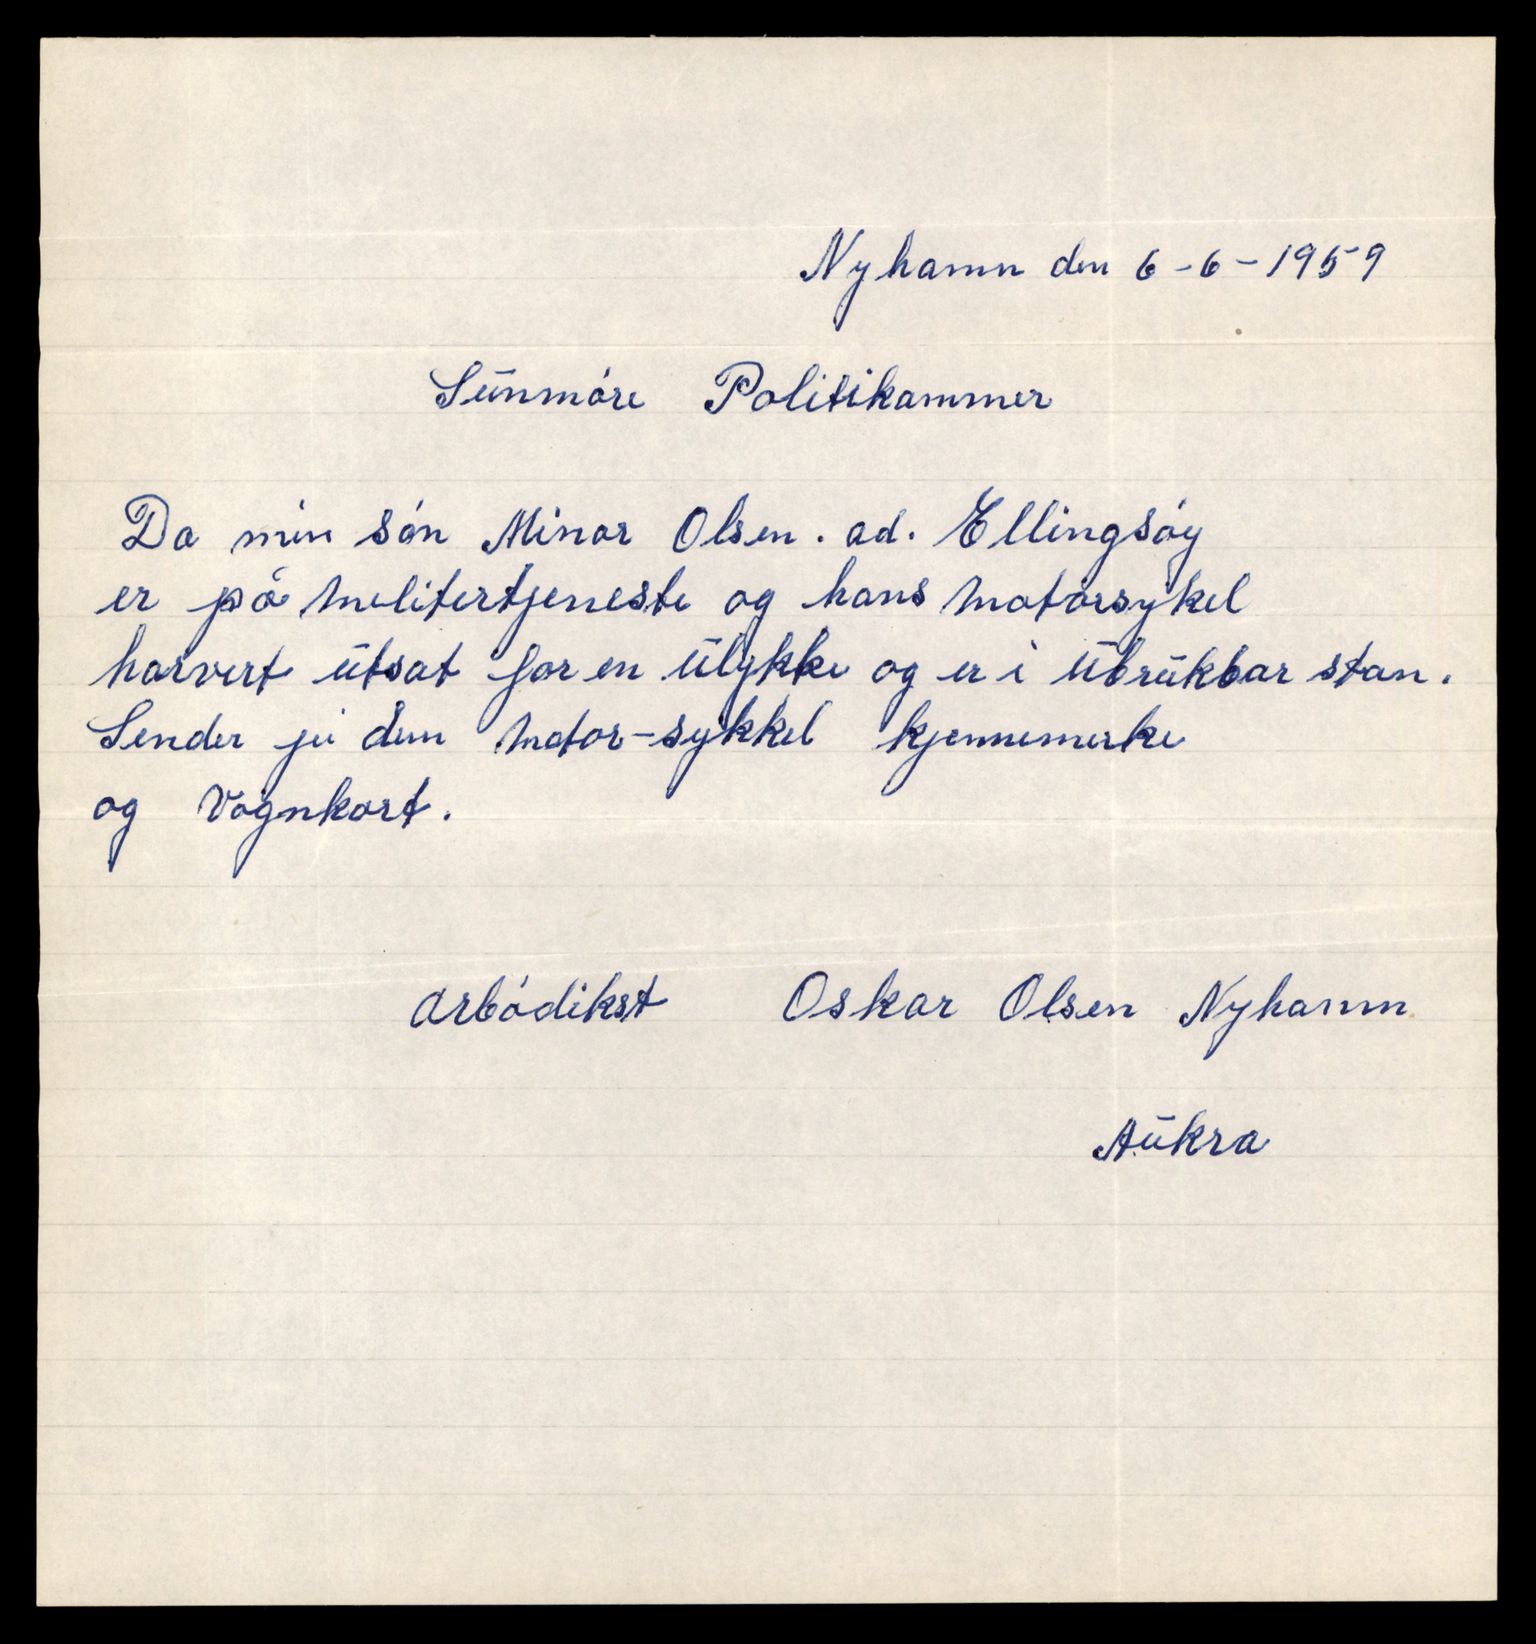 Nyhamn den 6-6-1959
Sūnmóre Politikammer
Da min són Minar Olsen. ad. Ellingsóy
er på melitertjeneste og hans motorsykel
harvert ūtsat for en ūlykke og er i ūbrūkbar stan.
Sender jei dem motor-sykkel kjennemerke
og Vognkort.
Arbódikst Oskar Olsen Nyhamn
Aūkra